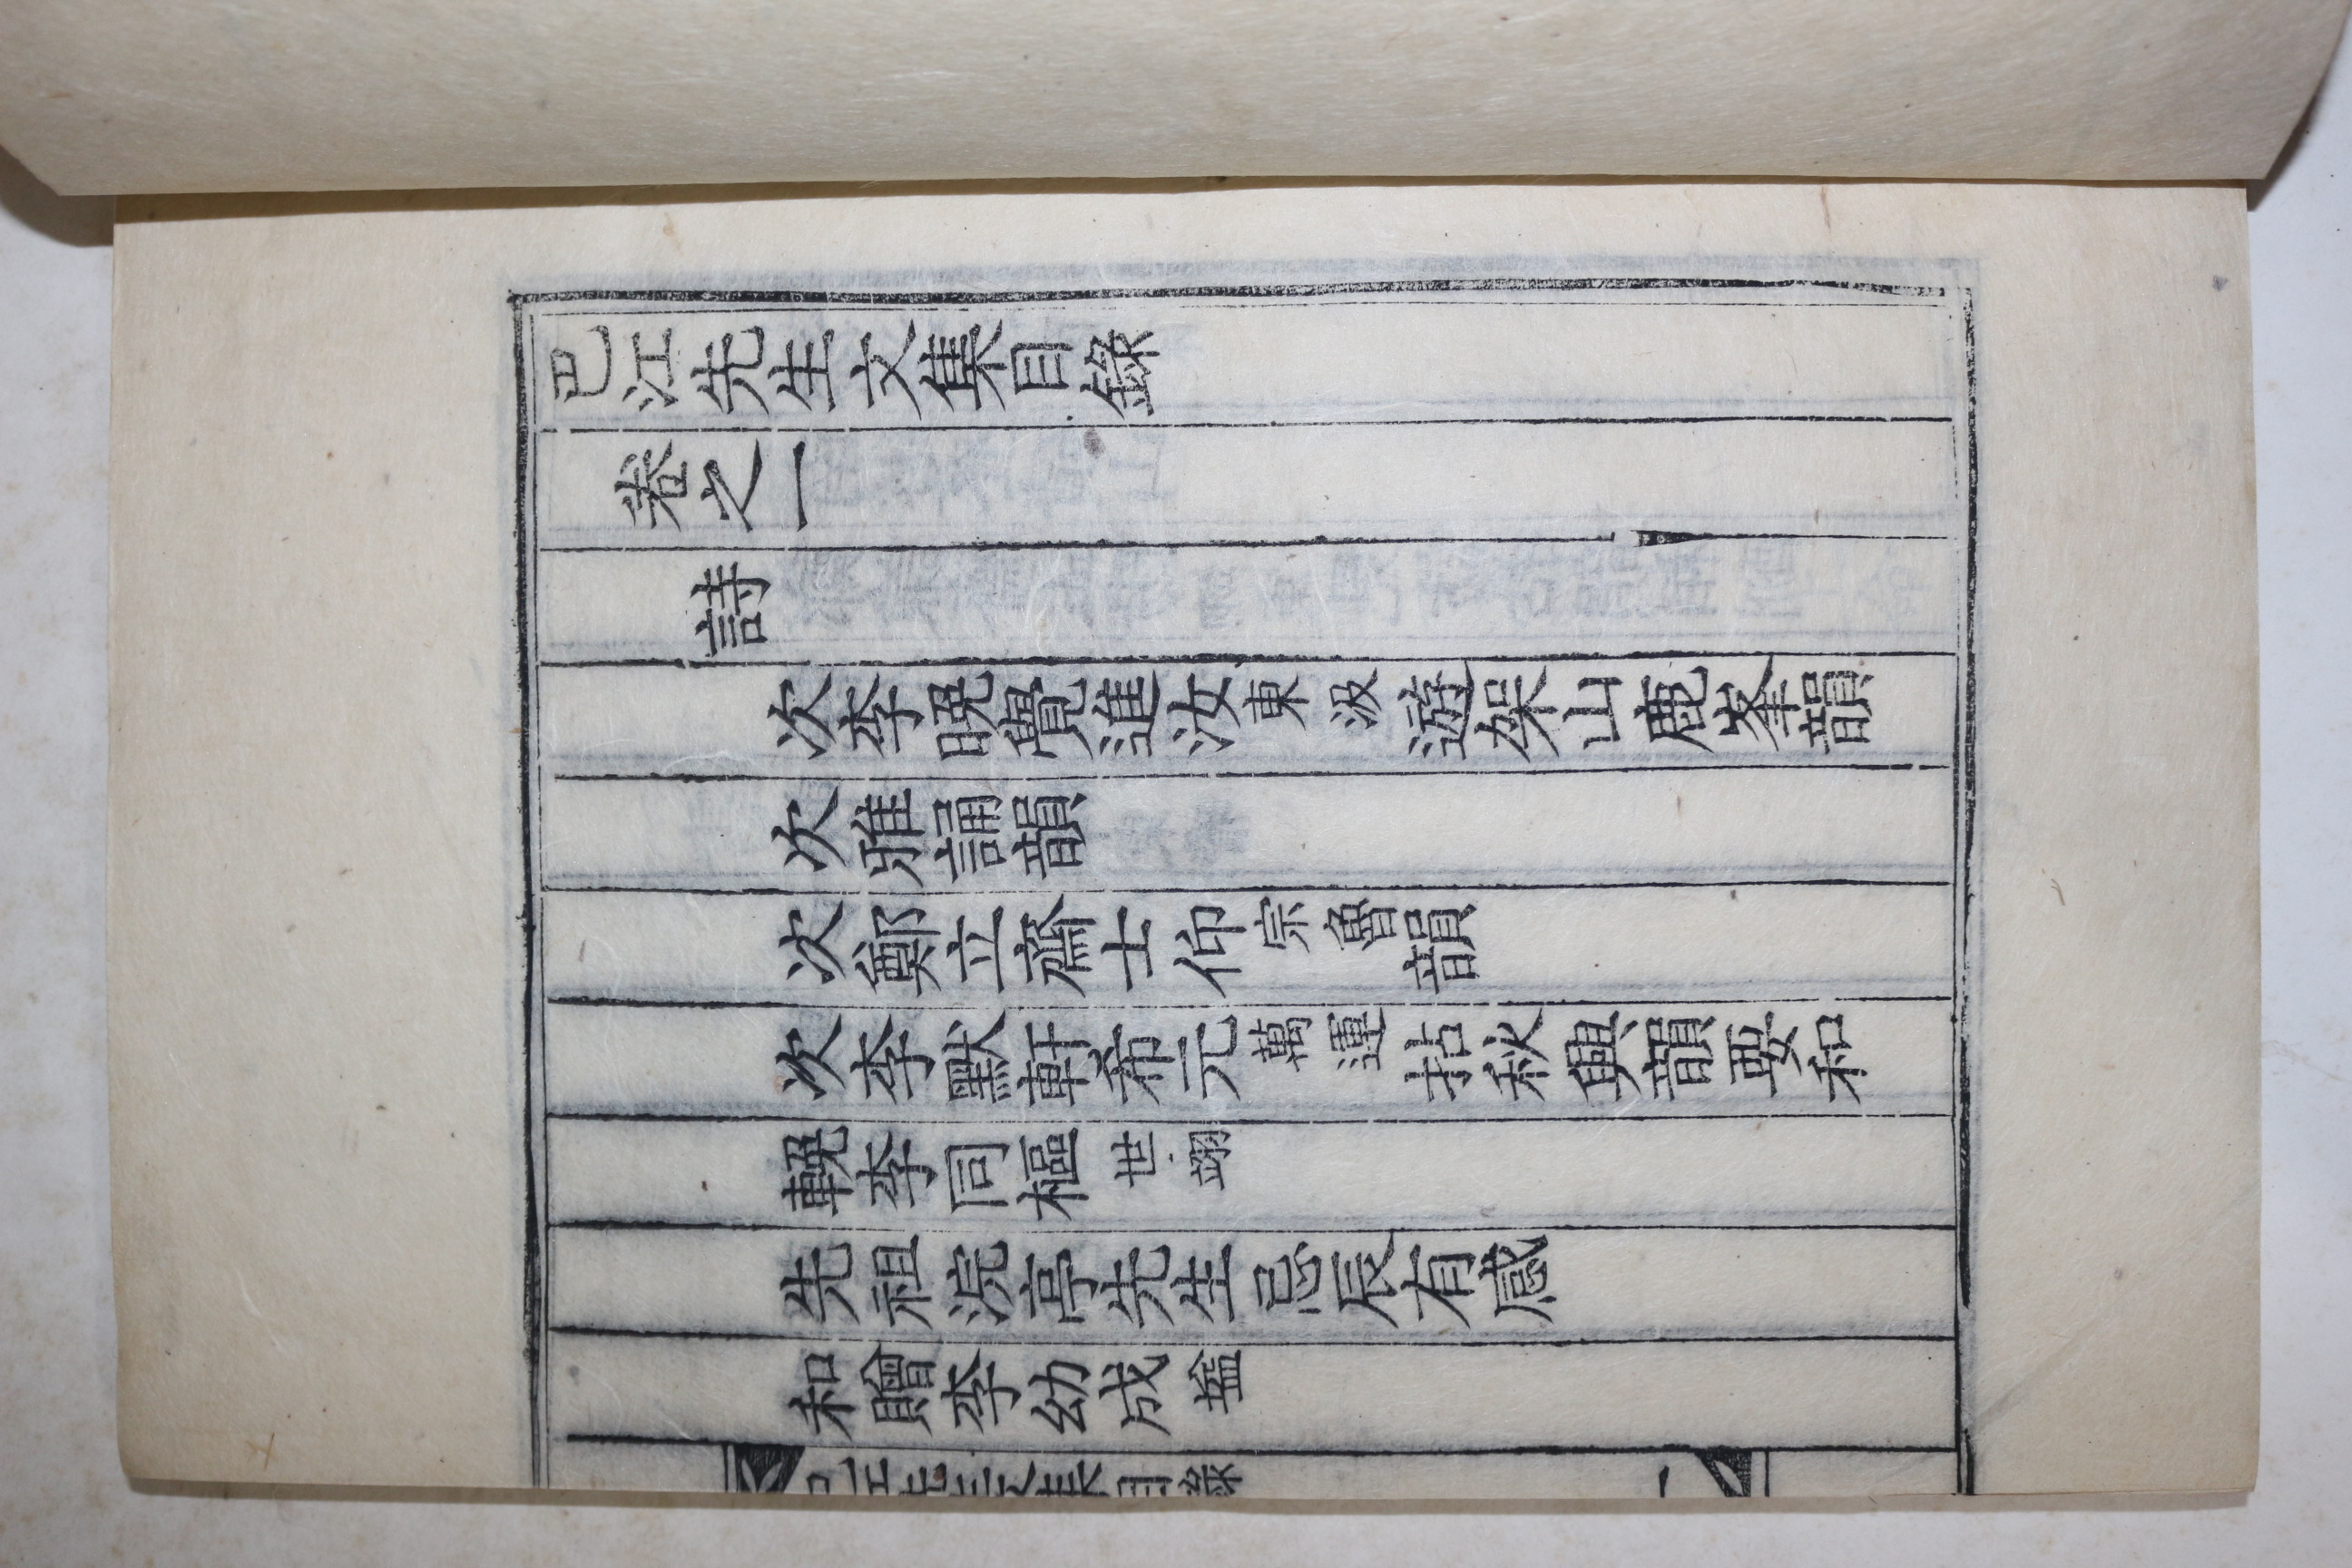 巴江先生文集目錄
卷之一
詩
次李晩覺進汝東汲遊架山鹿峯韻
次雅誦韻
次鄭立齋士仰宗魯韻
次李默軒希元萬運拈秋興韻要和
輓李同樞世翊
先祖浣亭先生忌辰有感
和贈李幼成㙜
巴江先生文集目錄
一